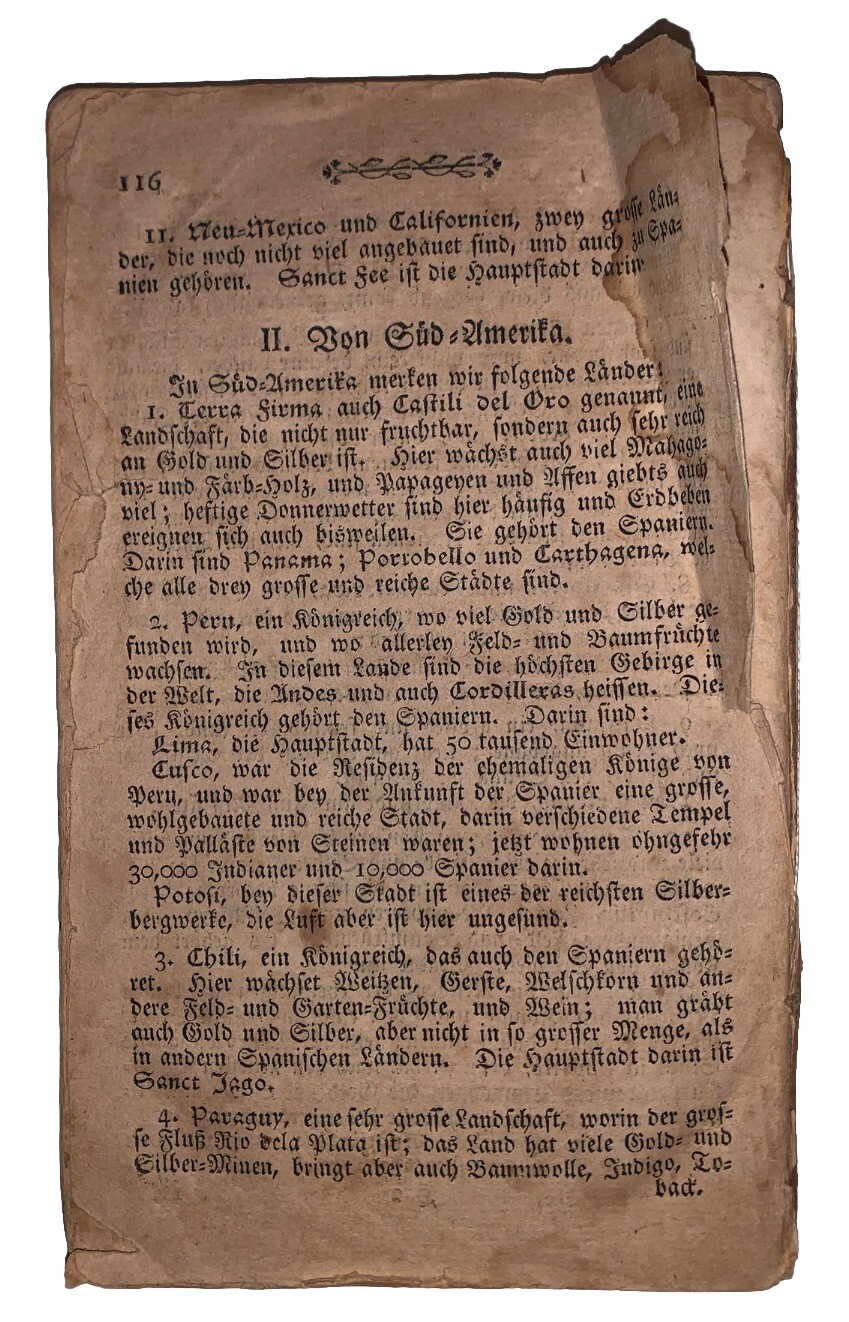 116
11. Neu-Mexico und Californien, zwey grosse Län-
der, die noch nicht viel angebauet sind, und auch zu Spa-
nien gehören. Sanct Fee ist die Hauptstadt darin
II. Von Süd-Amerika.
In Süd-Amerika merken wir folgende Länder:
1. Terra Firma auch Castili del Oro genannt, eine
Landschaft, die nicht nur fruchtbar, sondern auch sehr reich
an Gold und Silber ist. Hier wächst auch viel Mahago-
ny- und Färb-Holz, und Papageyen und Affen giebts auch
viel; heftige Donnerwetter sind hier häufig und Erdbeben
ereignen sich auch bisweilen. Sie gehört den Spaniern.
Darin sind Panama; Porrobello und Carthagena, wel-
che alle drey grosse und reiche Städte sind.
2. Peru, ein Königreich, wo viel Gold und Silber ge-
funden wird, und wo allerley Feld- und Baumfrüchte
wachsen. In diesem Lande sind die höchsten Gebirge in
der Welt, die Andes und auch Cordilleras heissen. Die-
ses Königreich gehört den Spaniern. Darin sind:
Lima, die Hauptstadt, hat 50 tausend Einwohner.
Cusco, war die Residenz der ehemaligen Könige von
Peru, und war bey der Ankunft der Spanier eine grosse,
wohlgebauete und reiche Stadt, darin verschiedene Tempel
und Palläste von Steinen waren; jetzt wohnen ohngefehr
30,000 Indianer und 10,000 Spanier darin.
Potosi, bey dieser Stadt ist eines der reichsten Silber-
bergwerke, die Luft aber ist hier ungesund.
3. Chili, ein Königreich, das auch den Spaniern gehö-
ret. Hier wächset Weitzen, Gerste, Welschkorn und an-
dere Feld- und Garten-Früchte, und Wein; man gräbt
auch Gold und Silber, aber nicht in so grosser Menge, als
in andern Spanischen Ländern. Die Hauptstadt darin ist
Sanct Jago.
4. Paraguy, eine sehr grosse Landschaft, worin der gros-
se Fluß Rio dela Plata ist; das Land hat viele Gold- und
Silber-Minen, bringt aber auch Baumwolle, Indigo, To-
back.